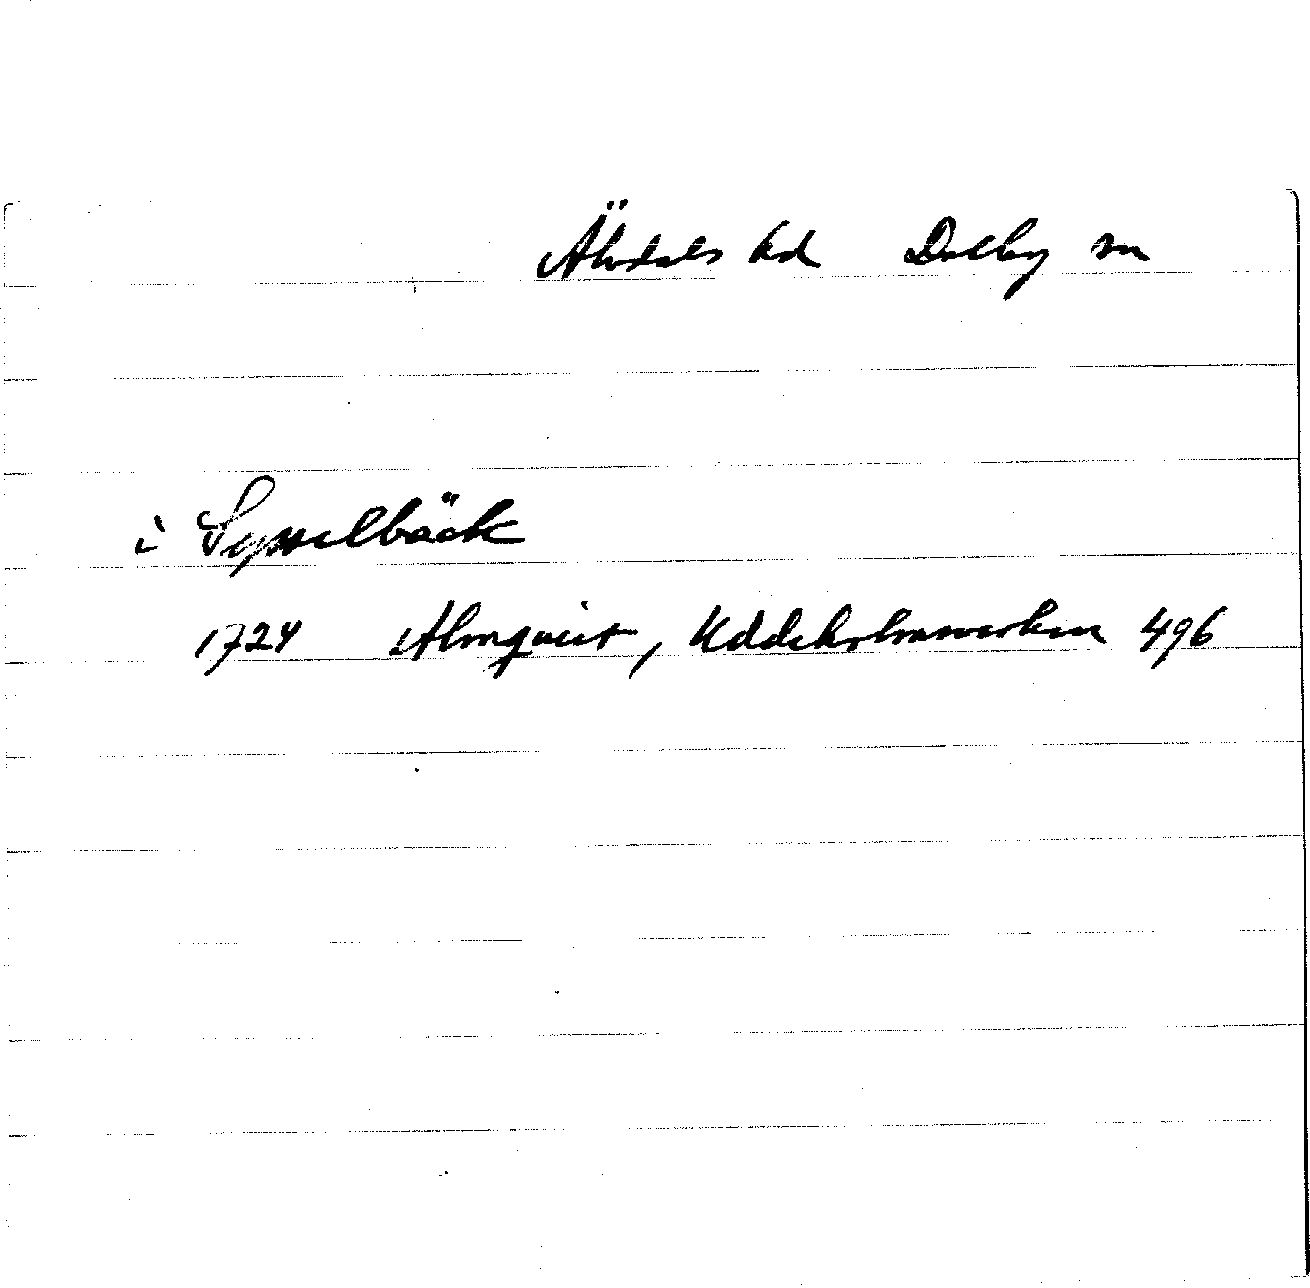 Älvdals hd Dalby sn
i Sysselbäck
1724 Almquist, Uddeholmsverken 496